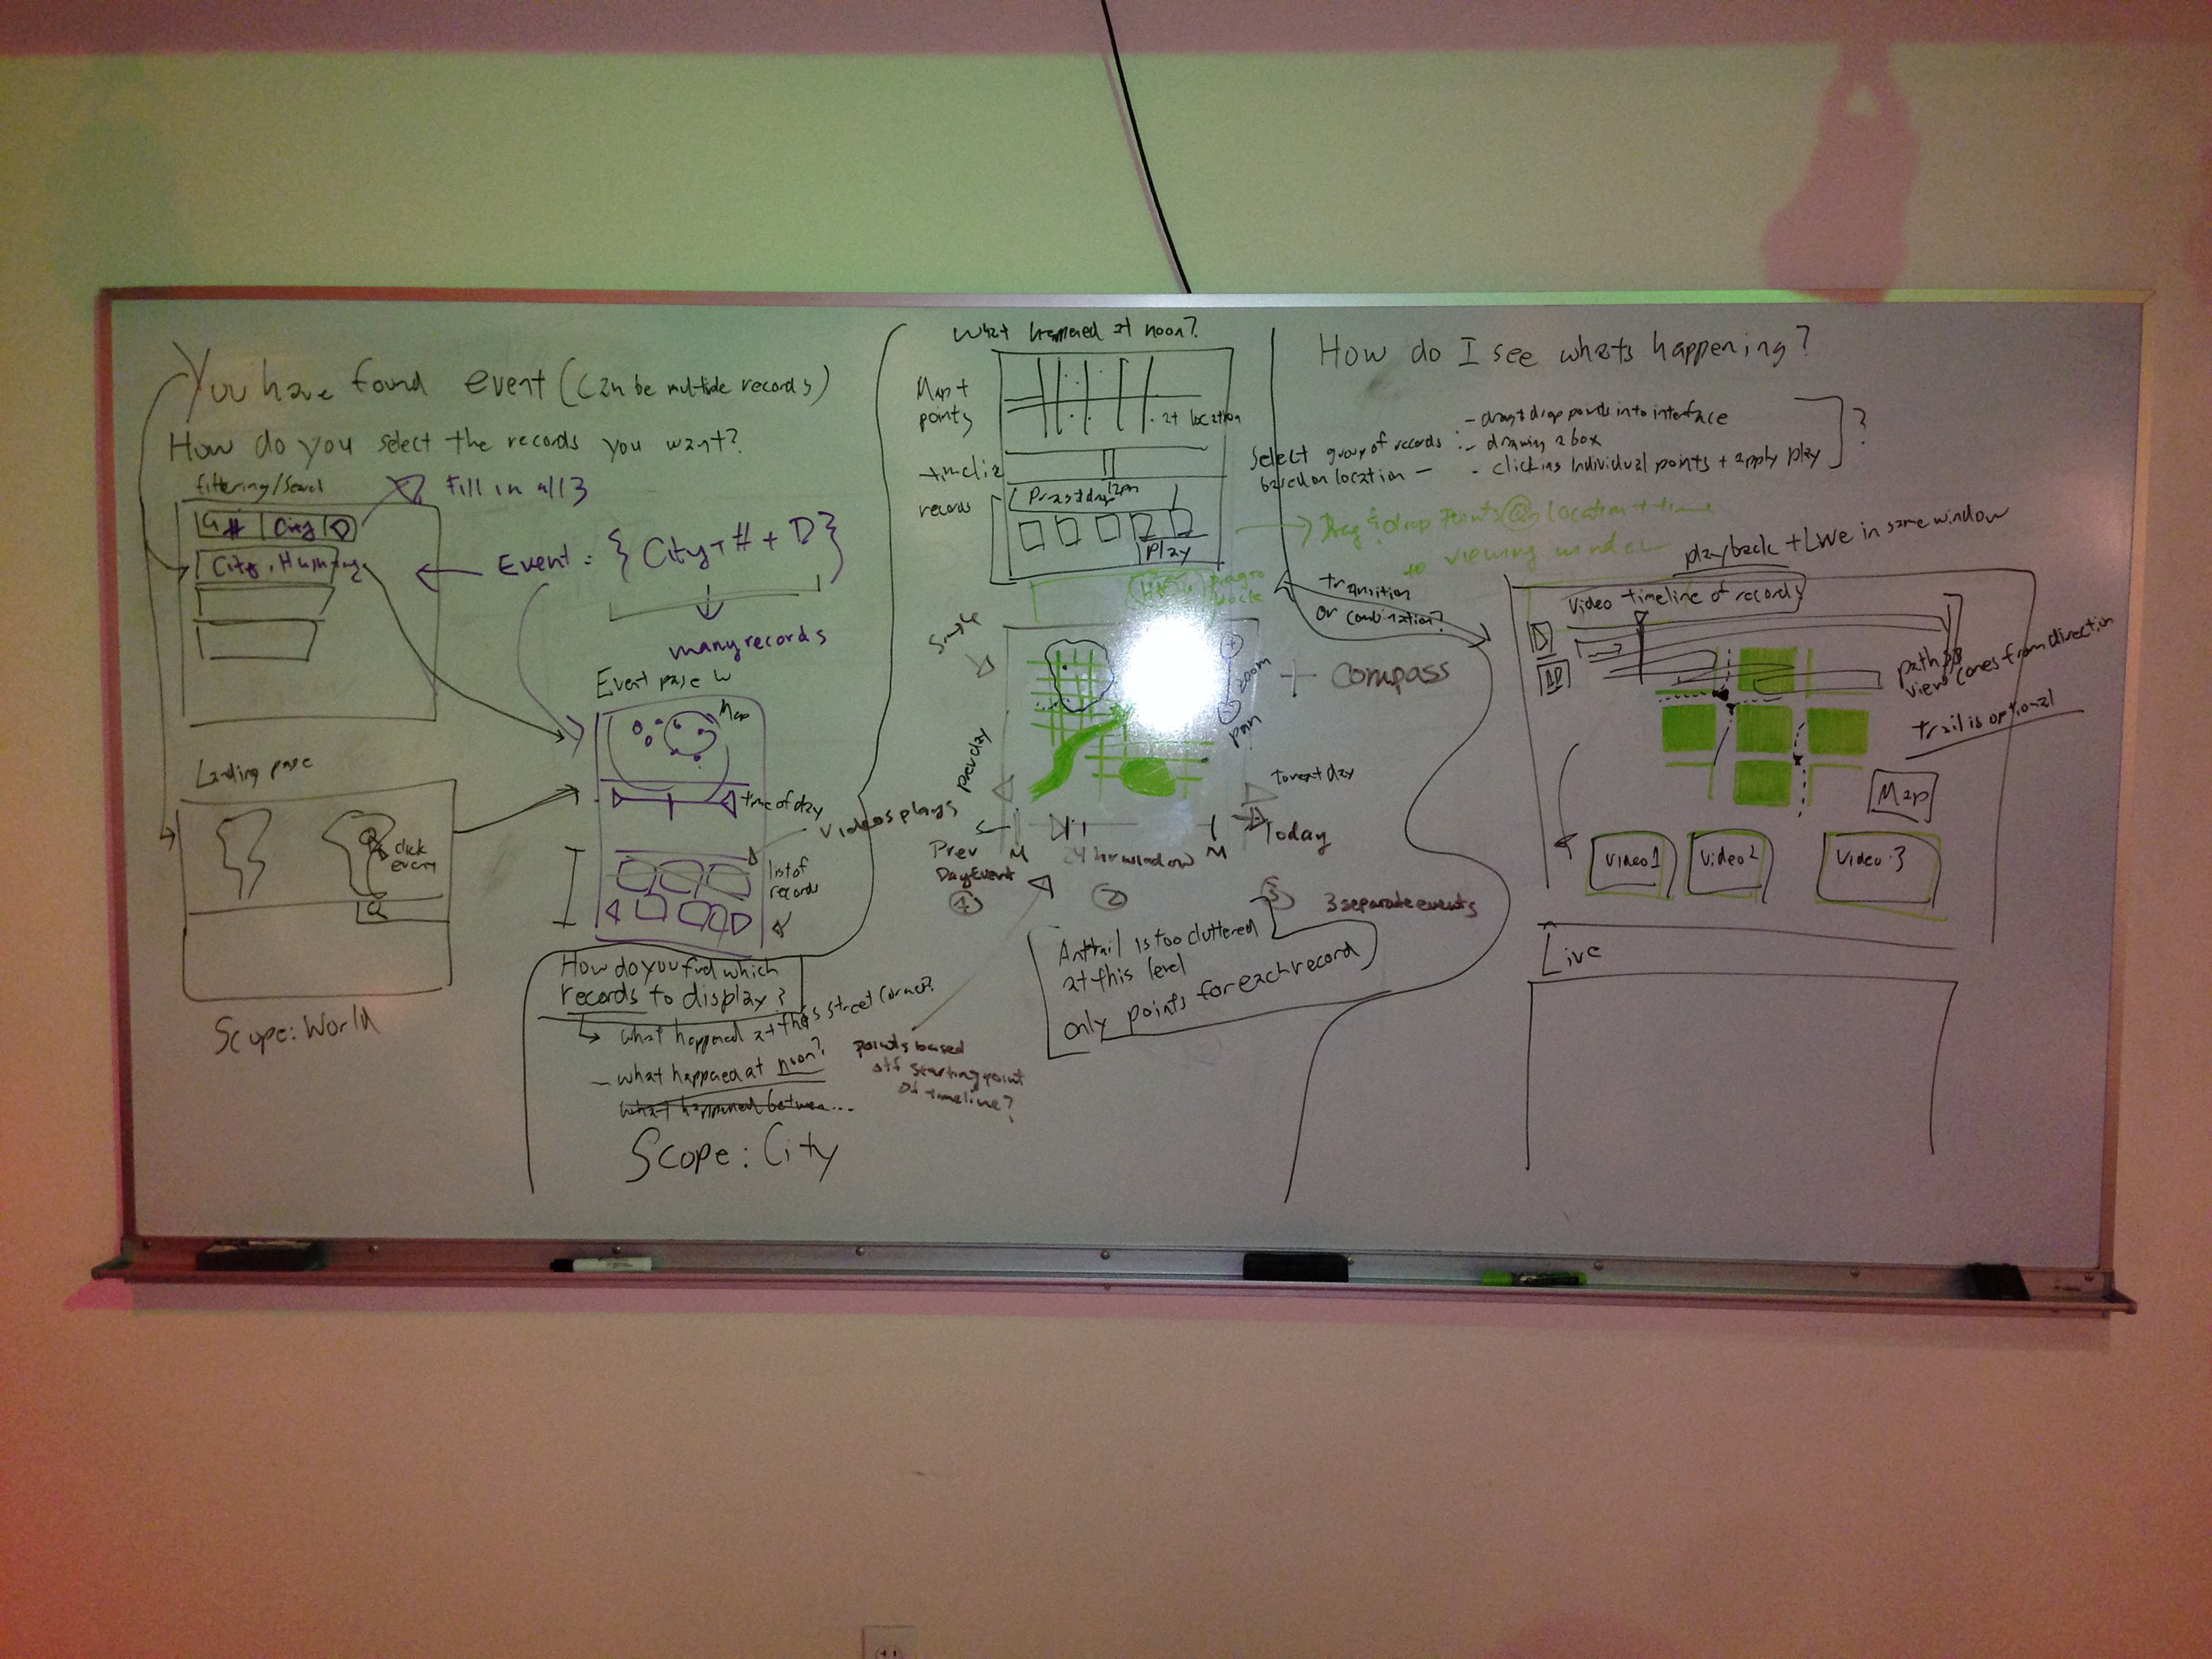 You have found event (can be multiple records)
How do you select the records you want?
filtering/Search
Fill in all 3
# City D
City, Hashtag
Event = { City + # + D }
many records
Landing page
click
event
Scope: World
Event page
Map
time of day
Videos plays
list of
records
How do you find which
records to display?
What happened at this street corner?
- what happened at noon?
what happened between...
Scope: City
What happened at noon?
Map +
points
at location
timeline
records
12pm
Play
Simple
zoom
pan
+ Compass
Prev day
To next day
Prev
Day Event
M
24 hr window
M
Today
1
2
3
3 separate events
Anttrail is too cluttered
at this level
only points for each record
points based
off starting point
of timeline?
transition
or combination?
How do I see whats happening?
Select group of records
based on location -
- drag + drop points into interface
- drawing a box
- clicking individual points + apply play
?
Drag & drop Points @ location + time
to viewing window
playback + Live in same window
Video timeline of records
path
view cones from direction
trail is optional
Map
Video 1
Video 2
Video 3
Live